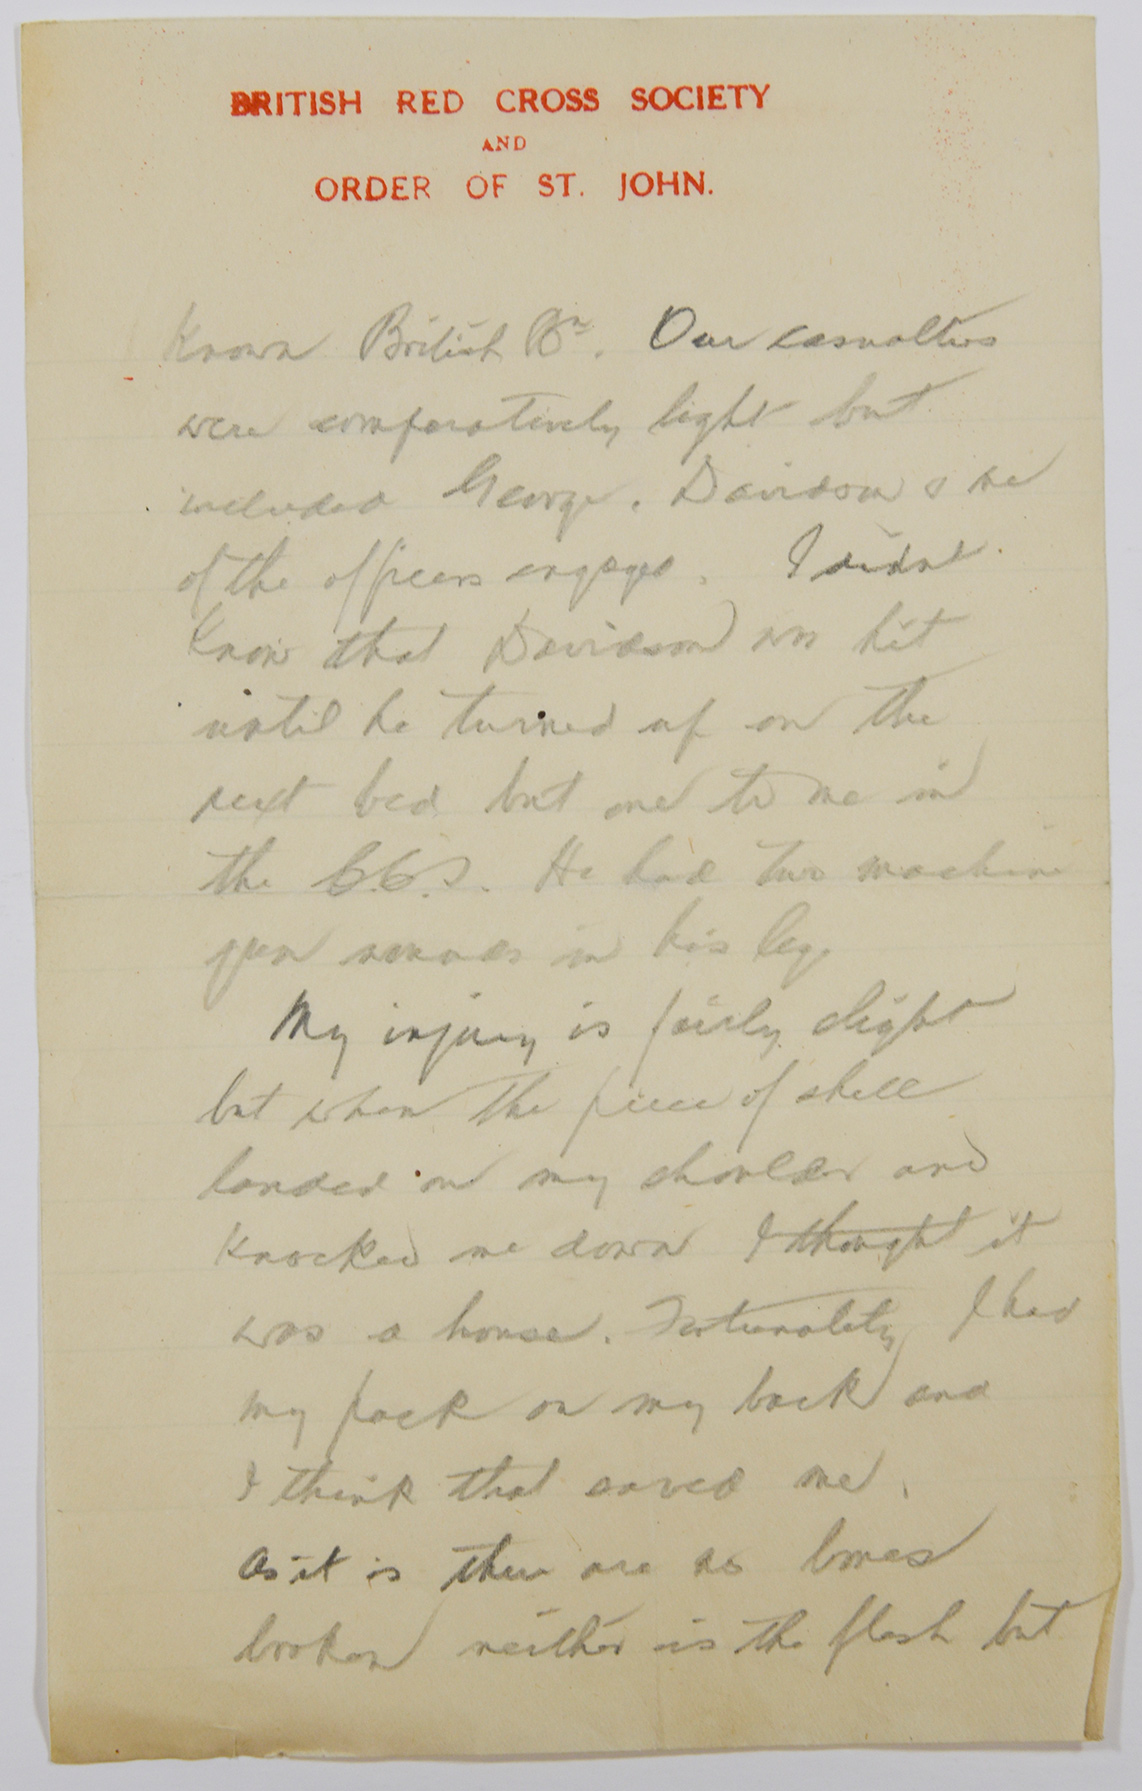 BRITISH RED CROSS SOCIETY
AND
ORDER OF ST. JOHN.
known British Bn. Our casualties
were comparatively light but
included George, Davidson & me
of the officers engaged. I didnt
know that Davidson was hit
until he turned up on the
next bed but one to me in
the C.C.S. He had two machine
gun wounds in his leg.
My injury is fairly slight
but when the piece of shell
landed on my shoulder and
knocked me down I thought it
was a house. Fortunately I had
my pack on my back and
I think that saved me.
As it is there are no bones
broken neither is the flesh but